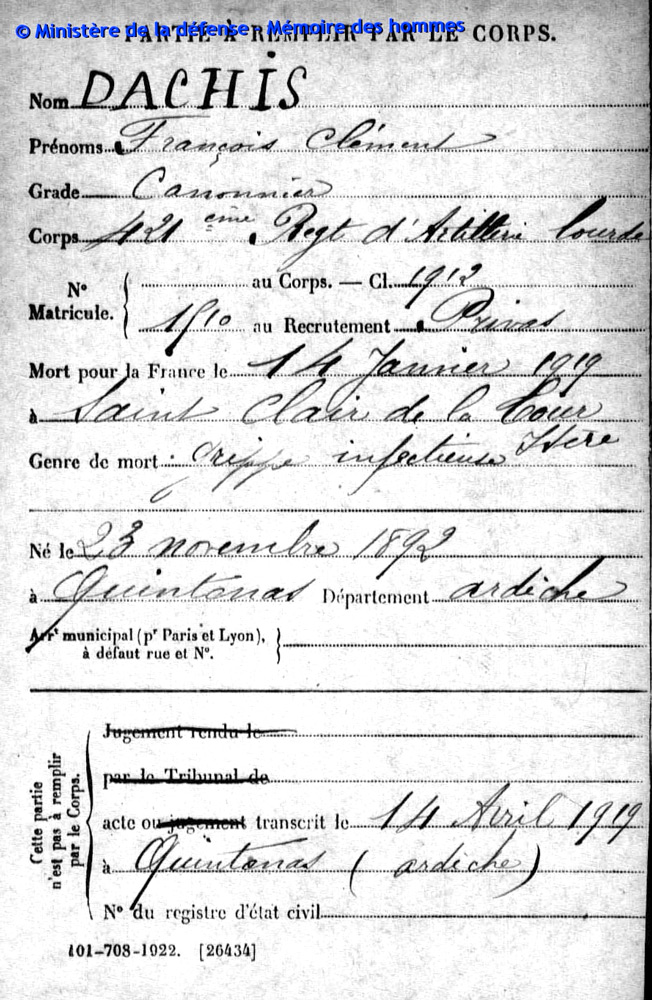 © Ministère de la défense - Mémoire des hommes
PARTIE À REMPLIR PAR LE CORPS.
Nom DACHIS
Prénoms François Clément
Grade Canonnier
Corps 421 ème Regt d'Artillerie lourde
N° Matricule. { au Corps. — Cl. 1912
1510 au Recrutement Privas
Mort pour la France le 14 Janvier 1919
à Saint Clair de la Tour
Isère
Genre de mort : Grippe infectieuse
Né le 23 novembre 1892
à Quintenas Département ardèche
Arrt municipal (pr Paris et Lyon), }
à défaut rue et N°.
Cette partie n'est pas à remplir par le Corps.
Jugement rendu le
par le Tribunal de
acte ou jugement transcrit le 14 Avril 1919
à Quintenas (ardèche)
N° du registre d'état civil
101-708-1922. [26434]